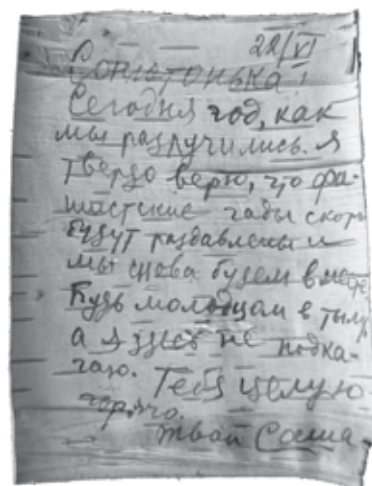 22/VI
Сонютонька!
Сегодня год, как
мы разлучились. Я
твердо верю, что фа-
шистские гады скоро
будут раздавлены и
мы снова будем вместе,
Будь молодцом в тылу,
а я здесь не подка-
чаю. Тебя целую
горячо.
Твой Саша